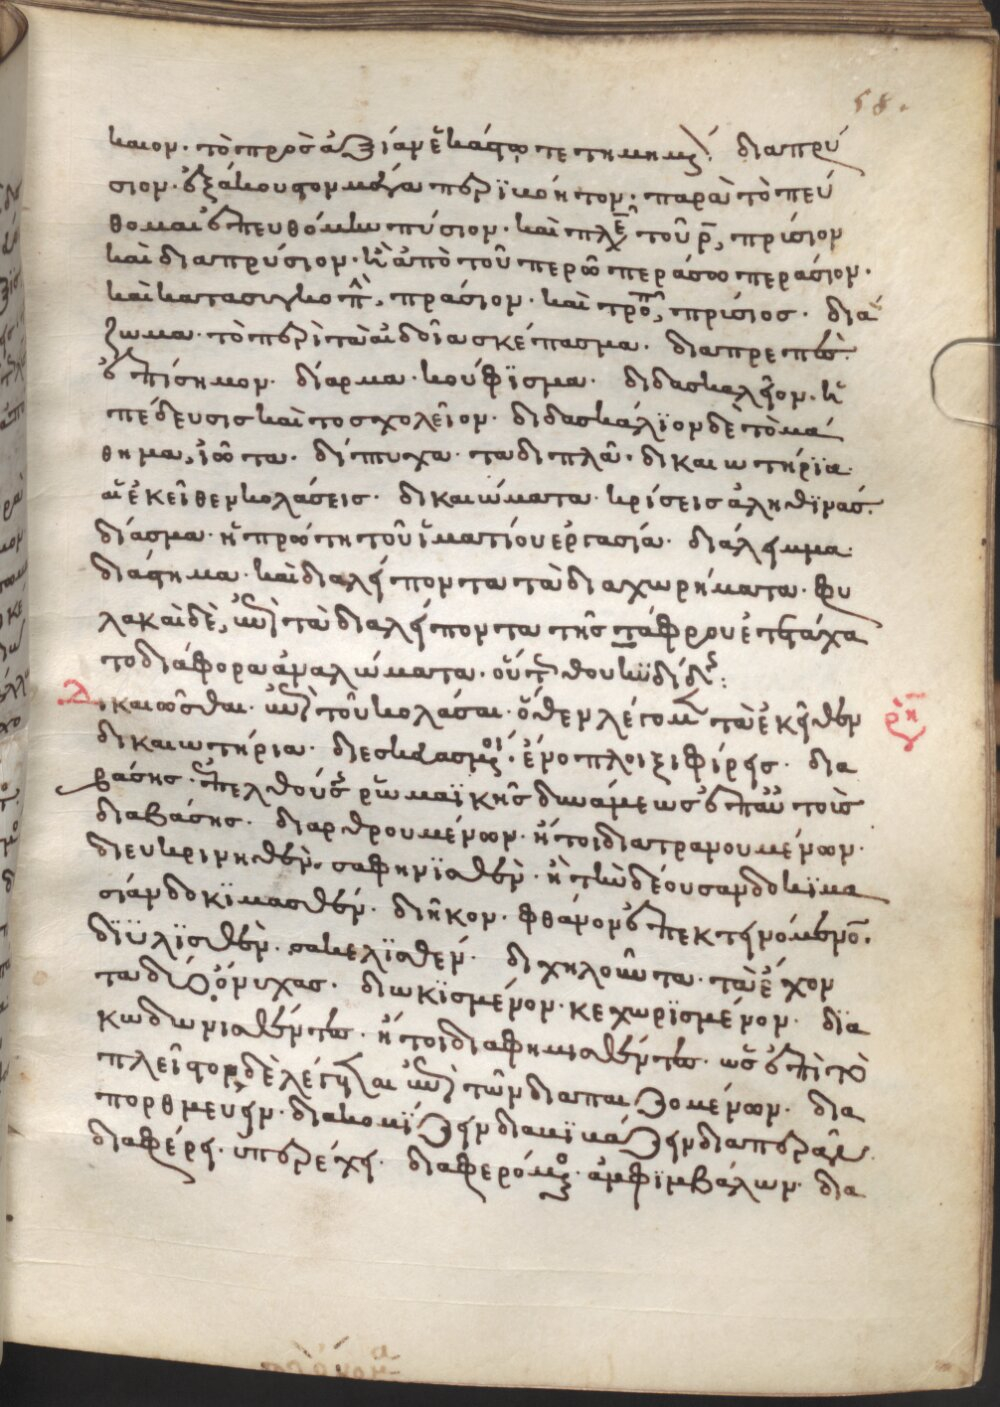 58.
καιον· τὸ πρὸς ἀξίαν ἑκάστω τετημημ διαπρύ
σιον· ἐξάκουστον μέγα περϊκόητον· παρὰ τὸ πεύ
θομαι ἐπευθόμην πύσιον· καὶ τοῦ ρ̅, πρίσιον
καὶ διαπρύσιον· ἢ ἀπὸ τοῦ περῶ περάσω περάσιον·
καὶ κατασυγκοπὴ, πράσιον· καὶ τροπῆ, πρίσιος· διά
ζωμα· τὸ περὶ τὰ αἰδοῖα σκέπασμα· διαπρεπὲς·
ἐπίσημον· δίαρμα· κούφϊσμα· διδασκαλεῖον· ἡ
πέδευσις καὶ το σχολεῖον· διδασκάλϊον δὲ τὸ μά
θημα, ἰῶτα· δίπτυχα· τα διπλᾶ· δικαιωτήρϊα·
αἱ ἐκεῖθεν κολάσεις· δικαιώματα· κρίσεις ἀληθϊνάς·
δίασμα· ἡ πρώτη τοῦ ἱματίου ἐργασία· διάλειμμα·
διάστημα· καὶ διαλείποντα τὰ διαχωρήματα· φυ
λακαὶ δὲ, τὰ διαλείποντα τῆς τάφρου ἐπετάχα
το διάφορα ἀναλώματα· οὕτως θουκϋδίδης:
δικαιῶσθαι· ἀντὶ τοῦ κολάσαι· ὅθεν λέγομεν τὰ ἐκεῖθεν
δικαιωτήρια· διεσκεασμένοι· ἐνοπλοι ξιφίρεις· δια
βάσης· ἐπελθούσης ρωμαϊκῆς δυνάμεως ἐπαὐτοῖς
διαβάσης· διαρθρουμένων· ἤτοι διατρανουμένων·
διευκρινηθὲν· σαφηνϊσθὲν· ἢ τὴν δέουσαν δοκϊμα
σίαν δοκϊμασθέν· διῆκον· φθάνον ἐπεκτεινόμενον·
διϋλϊσθὲν· σακελϊσθεν· διχηλοῦντα· τὰ ἔχον
τα δύο ὄνυχας· διωκϊσμένον· κεχωρϊσμένον· δϊα
κωδωνισθέντες· ἤτοι διαφημισθέντες· ὡς ἐπὶ τὸ
πλεῖστον δὲ λέγεται ἀντὶ τῶν διαπαιζομένων· δια
πορθμευειν· διακομϊζειν διακϊνάζειν διαπερᾶν·
διαφέρει· ὑπερέχει· διαφερόμενος· ἀμφϊμβάλων· δια